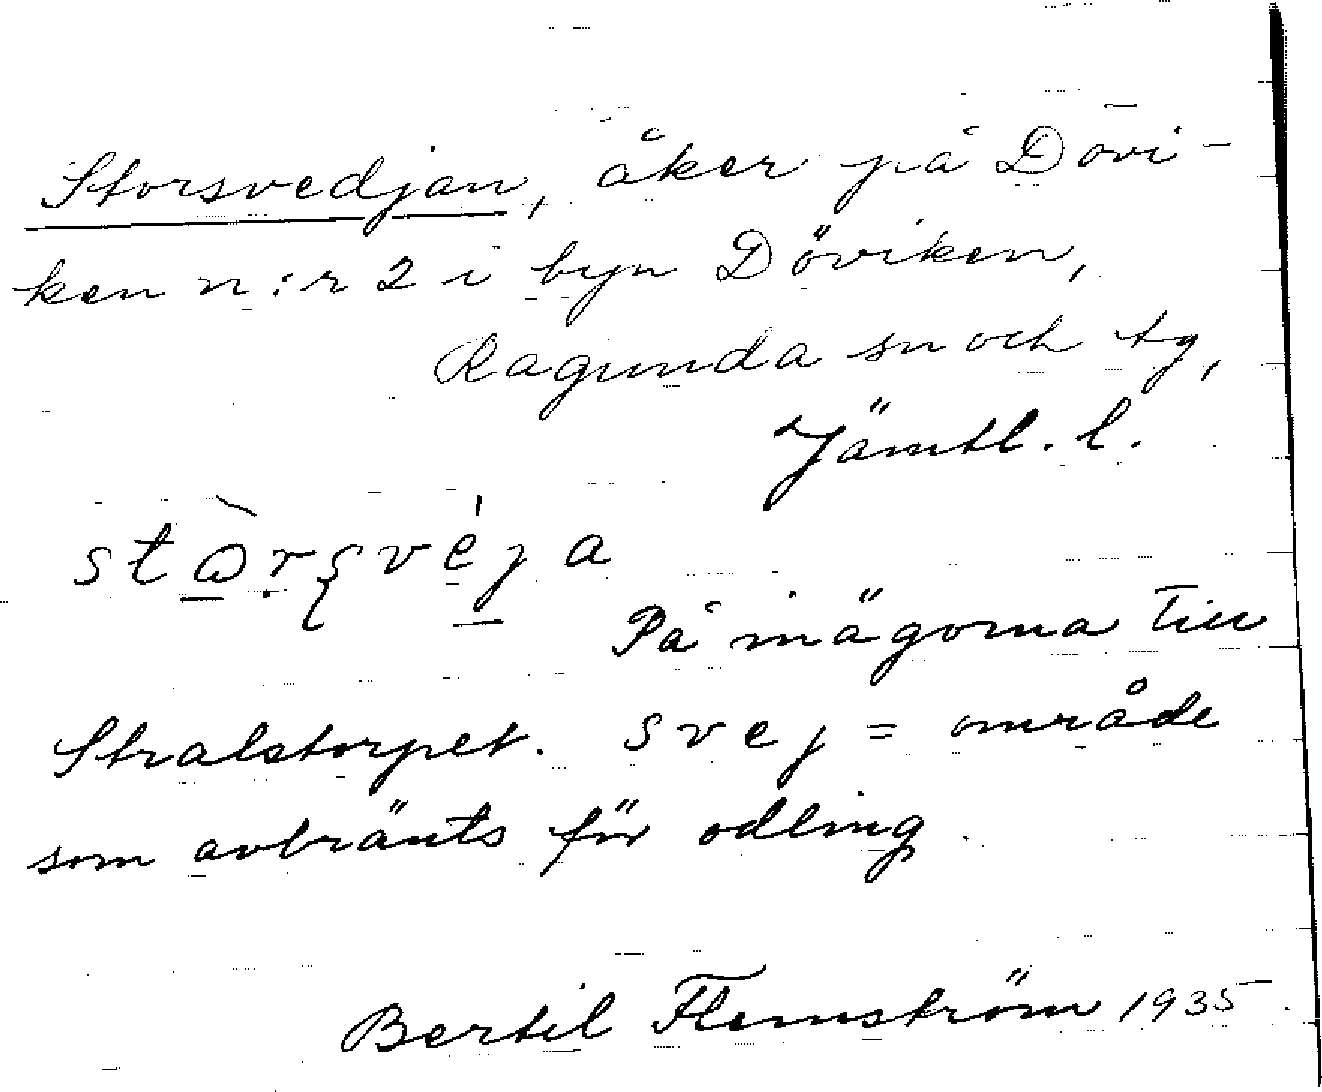 Storsvedjan, åker på Dövi-
ken n:r 2 i byn Döviken,
Ragunda sn och tg,
Jämtl. l.
På inägorna till
Stralstorpet. svej = område
som avbränts för odling.
Bertil Flemström 1935